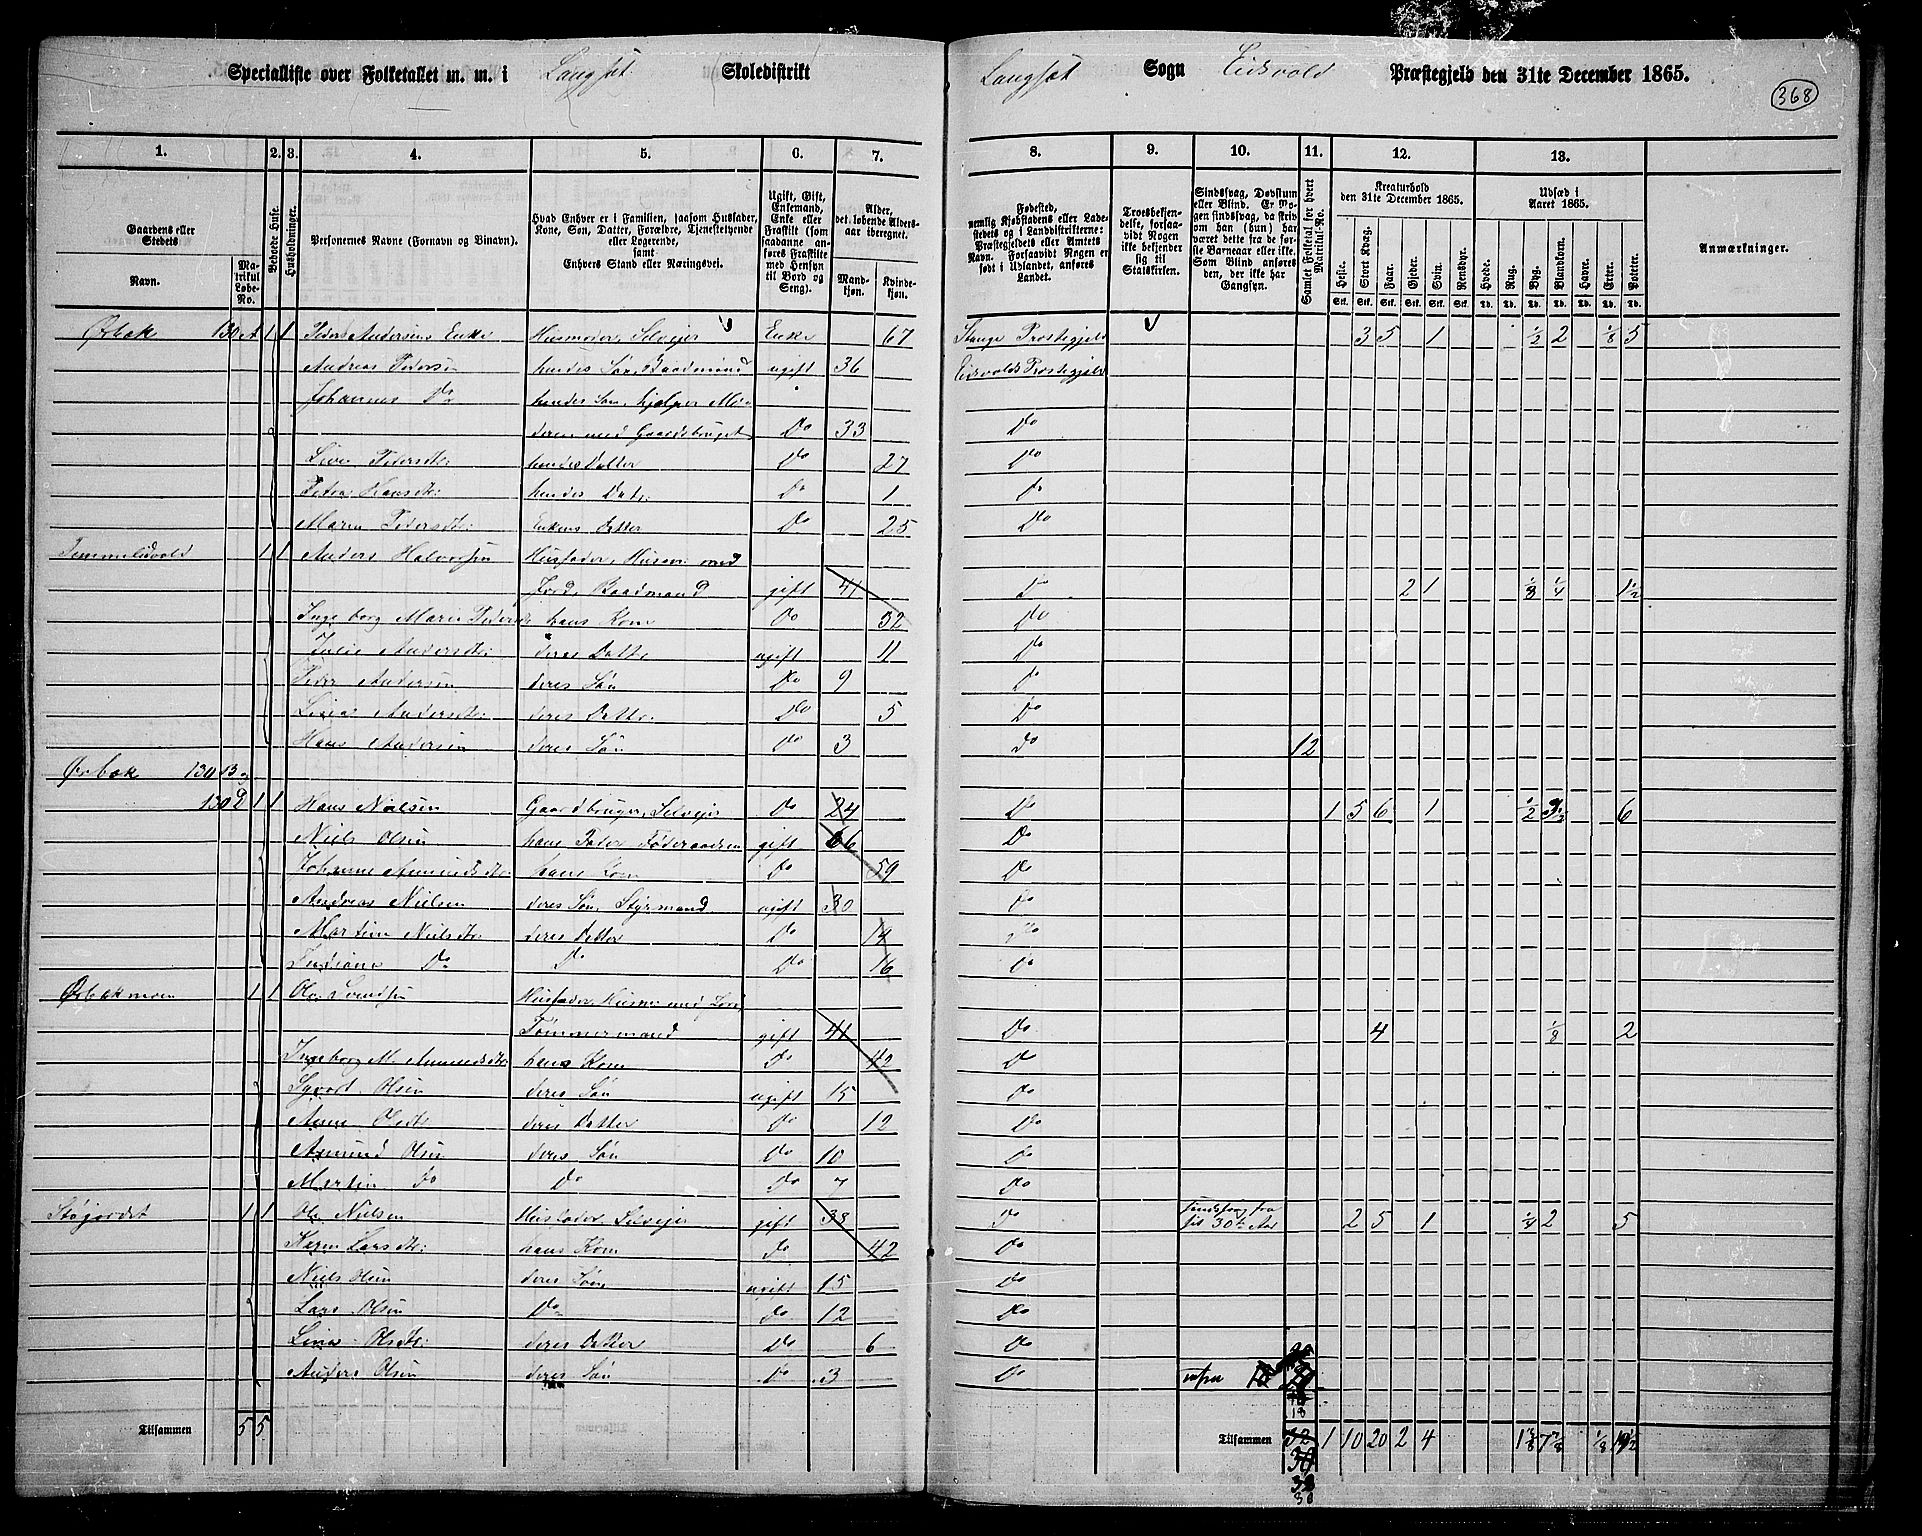 Specialliste over Folketallet m. m. i Langset Skoledistrikt
Langset Sogn Eidsvold Præstegjeld den 31te December 1865.
368
1. 2. 3. 4. 5. 6. 7.
8. 9. 10. 11. 12. 13.
Gaardens eller Stedets
Navn.
Matrikul Løbe-No.
Beboede Huse.
Husholdninger.
Personernes Navne (Fornavn og Binavn).
Hvad Enhver er i Familien, saasom Husfader, Kone, Søn, Datter, Forældre, Tjenestetyende eller Logerende, samt Enhvers Stand eller Næringsvei.
Ugift, Gift, Enkemand, Enke eller Fraskilt (som saadanne anføres Fraskilte med Hensyn til Bord og Seng).
Alder, det løbende Alders-aar iberegnet.
Mandkjøn. Kvindekjøn.
Fødested, nemlig Kjøbstadens eller Ladestedets og i Landdistrikterne: Præstegjeldets eller Amtets Navn. Forsaavidt Nogen er født i Udlandet, anføres Landet.
Troesbekjendelse, forsaavidt Nogen ikke bekjender sig til Statskirken.
Sindssvag, Døvstum eller Blind. Er Nogen sindssvag, da skrives om han (hun) har været dette fra de første Barneaar eller ikke. Som Blind anføres den, der ikke har Gangsyn.
Samlet Folketal for hvert Matrikul-No.
Kreaturhold den 31te December 1865.
Heste. Stort Kvæg. Faar. Gjeder. Sviin. Rensdyr.
Stk. Stk. Stk. Stk. Stk. Stk.
Udsæd i Aaret 1865.
Hvede. Rug. Byg. Blandkorn. Havre. Erter. Poteter.
Td. Td. Td. Td. Td. Td. Td.
Anmærkninger.
Ørbæk 130 A 1 1 Peder Andersens Enke Husmoder, Selveier Enke 67 Stange Præstegjeld 3 5 1 1/2 2 1/8 5
Andreas Pedersen hendes Søn, Baadsmand ugift 36 Eidsvolds Præstegjeld
Johannes Do hendes Søn, hjælper Mo-
deren med Gaardsbruget Do 33 Do
Line Pedersdtr: hendes Datter Do 27 Do
Petra Hansdtr: hendes Datr: Do 1 Do
Maren Pedersdtr: Enkens Datter Do 25 Do
1 1 Anders Halvorsen Husfader, Husm: med
Jord, Baadmand gift 41 Do 2 1 1/8 1/4 1 1/2
Ingeborg Marie Pedersdr hans Kone Do 32 Do
Julie Andersdtr: deres Dattr ugift 11 Do
Peder Andersen deres Søn Do 9 Do
Andersdtr: deres Dattr. Do 5 Do
Hans Andersen deres Søn Do 3 Do 12
Ørbæk 130 B og
130 d 1 1 Hans Nielsen Gaardbruger, Selveier Do 24 Do 1 5 6 1 1/2 6
Niels Olsen hans Fader Føderaadsm gift 66 Do
Johanne Amundsdtr: hans Kone Do 59 Do
Andreas Nielsen deres Søn, Styrmand ugift 30 Do
Martine Nielsdtr: deres Datter Do 19 Do
Do Do Do 16 Do
Ørbækmoen 1 1 Ole Svendsen Husfader, Husm: med Jord,
Tømmermand gift 41 Do 4 1/8 2
Ingeborg M. Amundsdtr: hans Kone Do 42 Do
Syvert Olsen deres Søn ugift 15 Do
Anne Olsdtr deres Datter Do 12 Do
Amund Olsen deres Søn Do 10 Do
Martin Do Do Do 7 Do
Støjordet 1 1 Ole Nielsen Husfader, Selveier gift 38 Do Sindssvag fra sit 30te Aar 2 5 1 1/4 2 5
Karen Larsdtr: hans Kone Do 42 Do
Niels Olsen deres Søn ugift 15 Do
Lars Olsen Do Do 12 Do
Line Olsdtr: deres Datter Do 6 Do
Anders Olsen deres Søn Do 3 Do
18
Tilsammen 5 5
Tilsammen 32 1 10 20 2 4
30